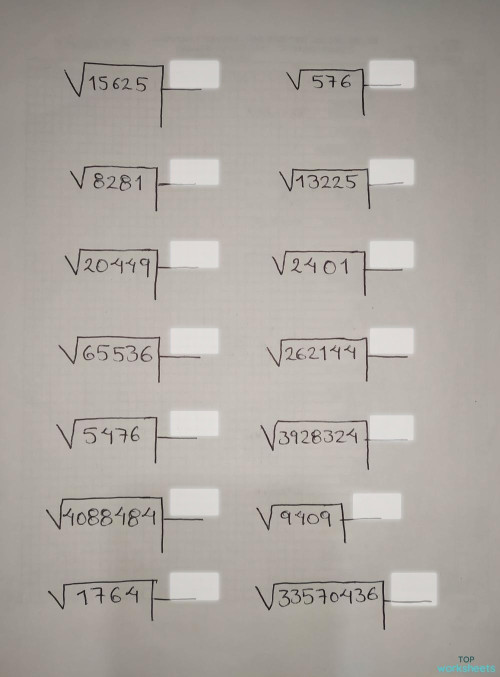 √15625 √576
√8281 √13225
√20449 √2401
√65536 √262144
√5476 √3928324
√4088484 √9409
√1764 √33570436
TOP
worksheets